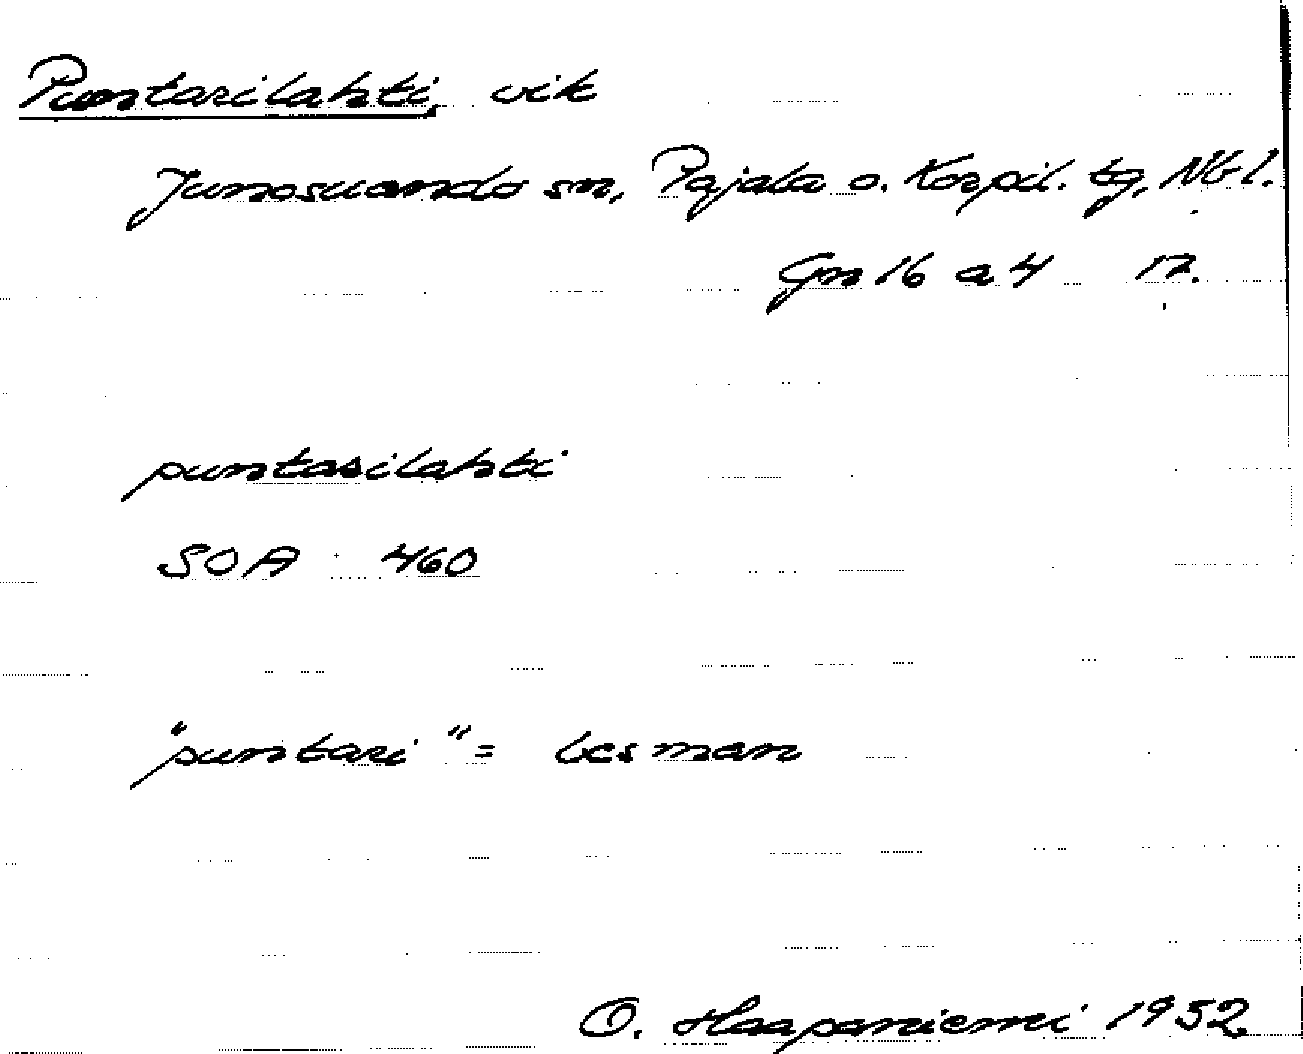 Puntarilahti, vik
Junosuando sn, Pajala o. Korpil. tg, Nbl.
Gn 16 a 4 17.
puntarilahti
SOA 460
"puntari" = besman
O. Haapaniemi 1952